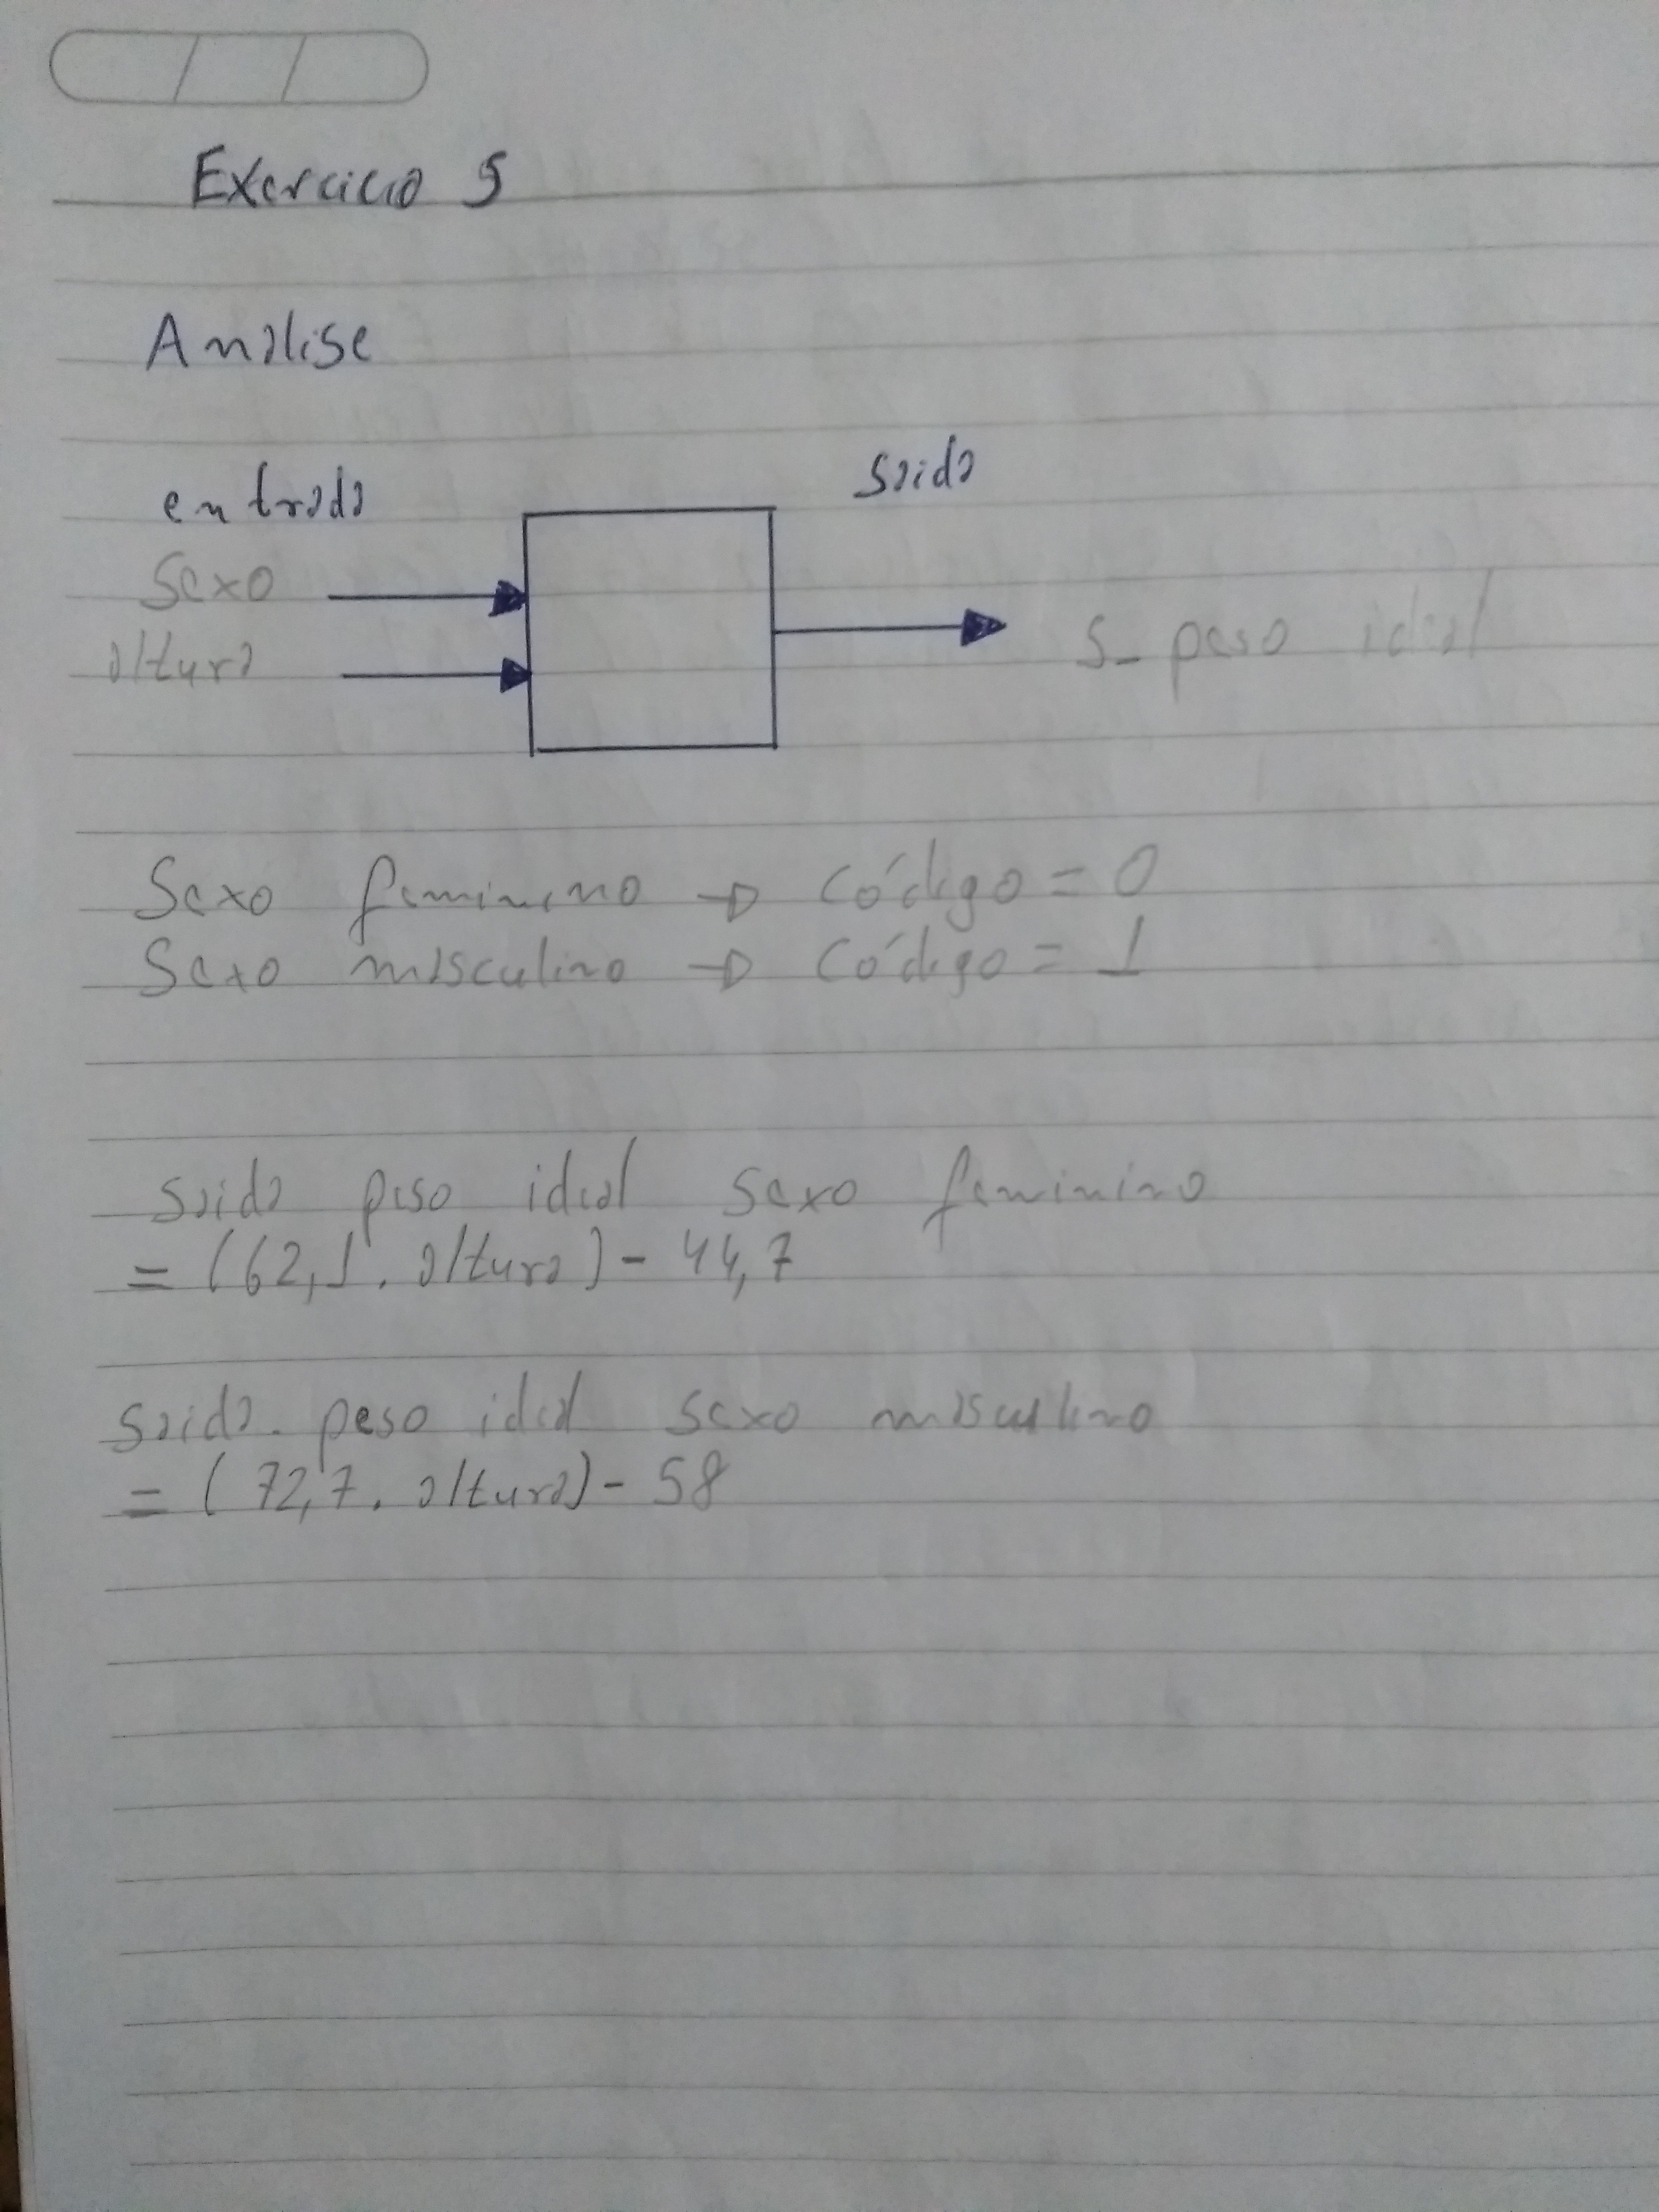 Exercicio 5
Análise
entrada
saida
sexo
altura
s_ peso ideal
Sexo feminino → código = 0
Sexo masculino → código = 1
saida peso ideal sexo feminino
= (62,1 . altura) - 44,7
saida peso ideal sexo masculino
= (72,7 . altura) - 58